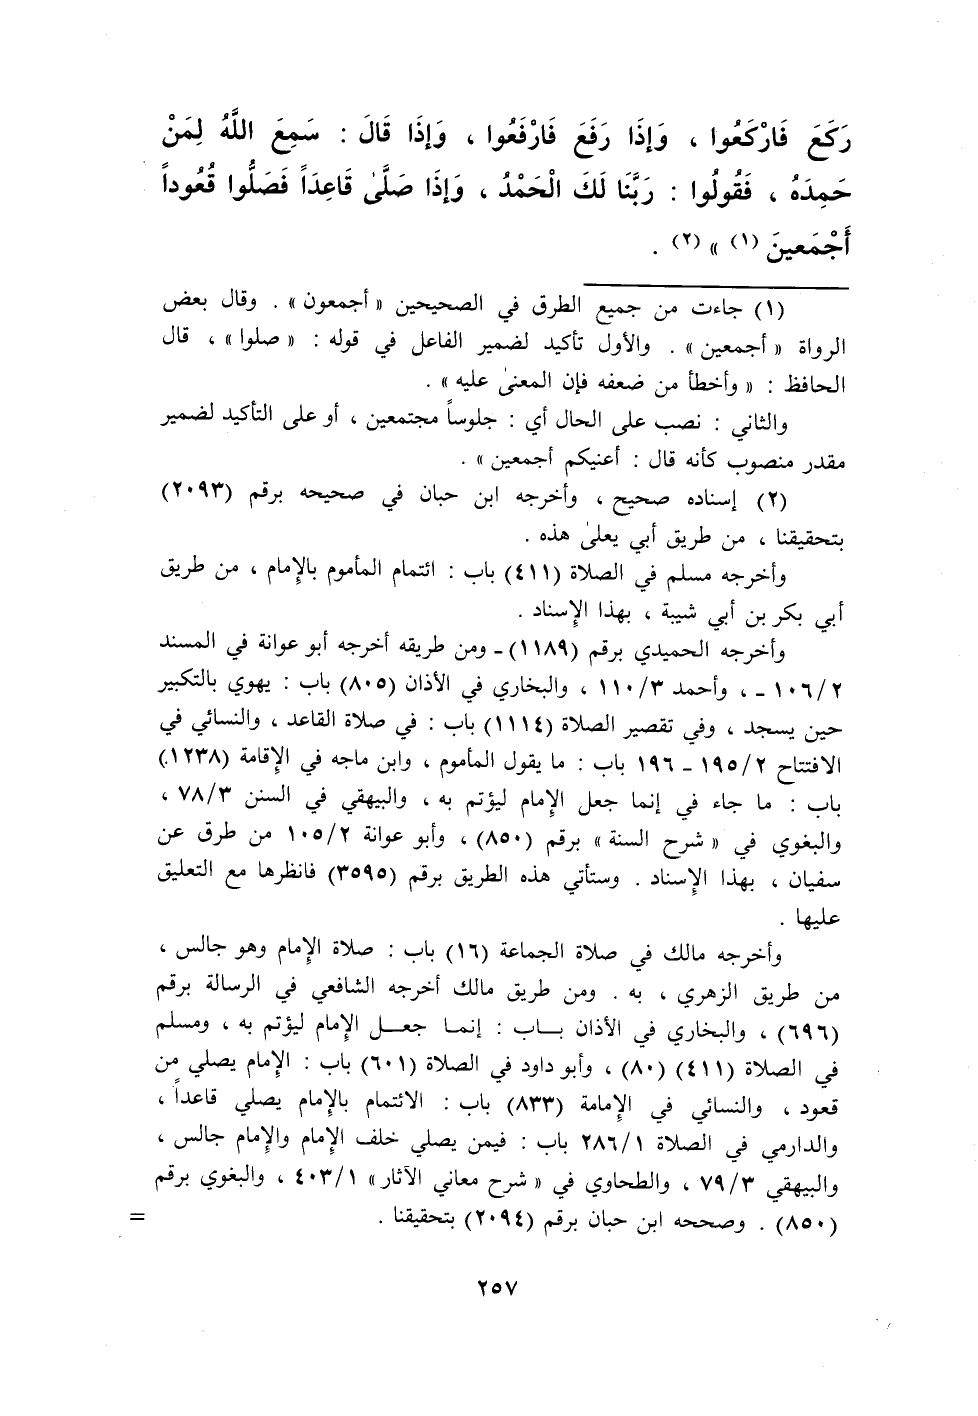 رَكَعَ فَارْكَعُوا ، وَإِذَا رَفَعَ فَارْفَعُوا ، وَإِذَا قَالَ : سَمِعَ اللَّهُ لِمَنْ
حَمِدَهُ ، فَقُولُوا : رَبَّنَا لَكَ الْحَمْدُ ، وَإِذَا صَلَّىٰ قَاعِدَاً فَصَلُّوا قُعُوداً
أَجْمَعينَ (١) » (٢) .
(١) جاءت من جميع الطرق في الصحيحين « أجمعون » . وقال بعض
الرواة « أجمعين » . والأول تأكيد لضمير الفاعل في قوله : « صلوا » ، قال
الحافظ : « وأخطأ من ضعفه فإن المعنىٰ عليه » .
والثاني : نصب على الحال أي : جلوساً مجتمعين ، أو على التأكيد لضمير
مقدر منصوب كأنه قال : أعنيكم أجمعين » .
(٢) إسناده صحيح ، وأخرجه ابن حبان في صحيحه برقم (٢٠٩٣)
بتحقيقنا ، من طريق أبي يعلىٰ هذه .
وأخرجه مسلم في الصلاة (٤١١) باب : ائتمام المأموم بالإمام ، من طريق
أبي بكر بن أبي شيبة ، بهذا الإسناد .
وأخرجه الحميدي برقم (١١٨٩) - ومن طريقه أخرجه أبو عوانة في المسند
١٠٦/٢ - ، وأحمد ١١٠/٣ ، والبخاري في الأذان (٨٠٥) باب : يهوي بالتكبير
حين يسجد ، وفي تقصير الصلاة (١١١٤) باب : في صلاة القاعد ، والنسائي في
الافتتاح ١٩٥/٢ - ١٩٦ باب : ما يقول المأموم ، وابن ماجه في الإقامة (١٢٣٨)
باب : ما جاء في إنما جعل الإمام ليؤتم به ، والبيهقي في السنن ٧٨/٣ ،
والبغوي في « شرح السنة » برقم (٨٥٠) ، وأبو عوانة ١٠٥/٢ من طرق عن
سفيان ، بهذا الإسناد . وستأتي هذه الطريق برقم (٣٥٩٥) فانظرها مع التعليق
عليها .
وأخرجه مالك في صلاة الجماعة (١٦) باب : صلاة الإمام وهو جالس ،
من طريق الزهري ، به . ومن طريق مالك أخرجه الشافعي في الرسالة برقم
(٦٩٦) ، والبخاري في الأذان بـاب : إنمـا جعـل الإمام ليؤتم به ، ومسلم
في الصلاة (٤١١) (٨٠) ، وأبو داود في الصلاة (٦٠١) باب : الإمام يصلي من
قعود ، والنسائي في الإمامة (٨٣٣) باب : الائتمام بالإمام يصلي قاعداً ،
والدارمي في الصلاة ٢٨٦/١ باب : فيمن يصلي خلف الإمام والإمام جالس ،
والبيهقي ٧٩/٣ ، والطحاوي في « شرح معاني الآثار » ٤٠٣/١ ، والبغوي برقم
(٨٥٠) . وصححه ابن حبان برقم (٢٠٩٤) بتحقيقنا . =
٢٥٧